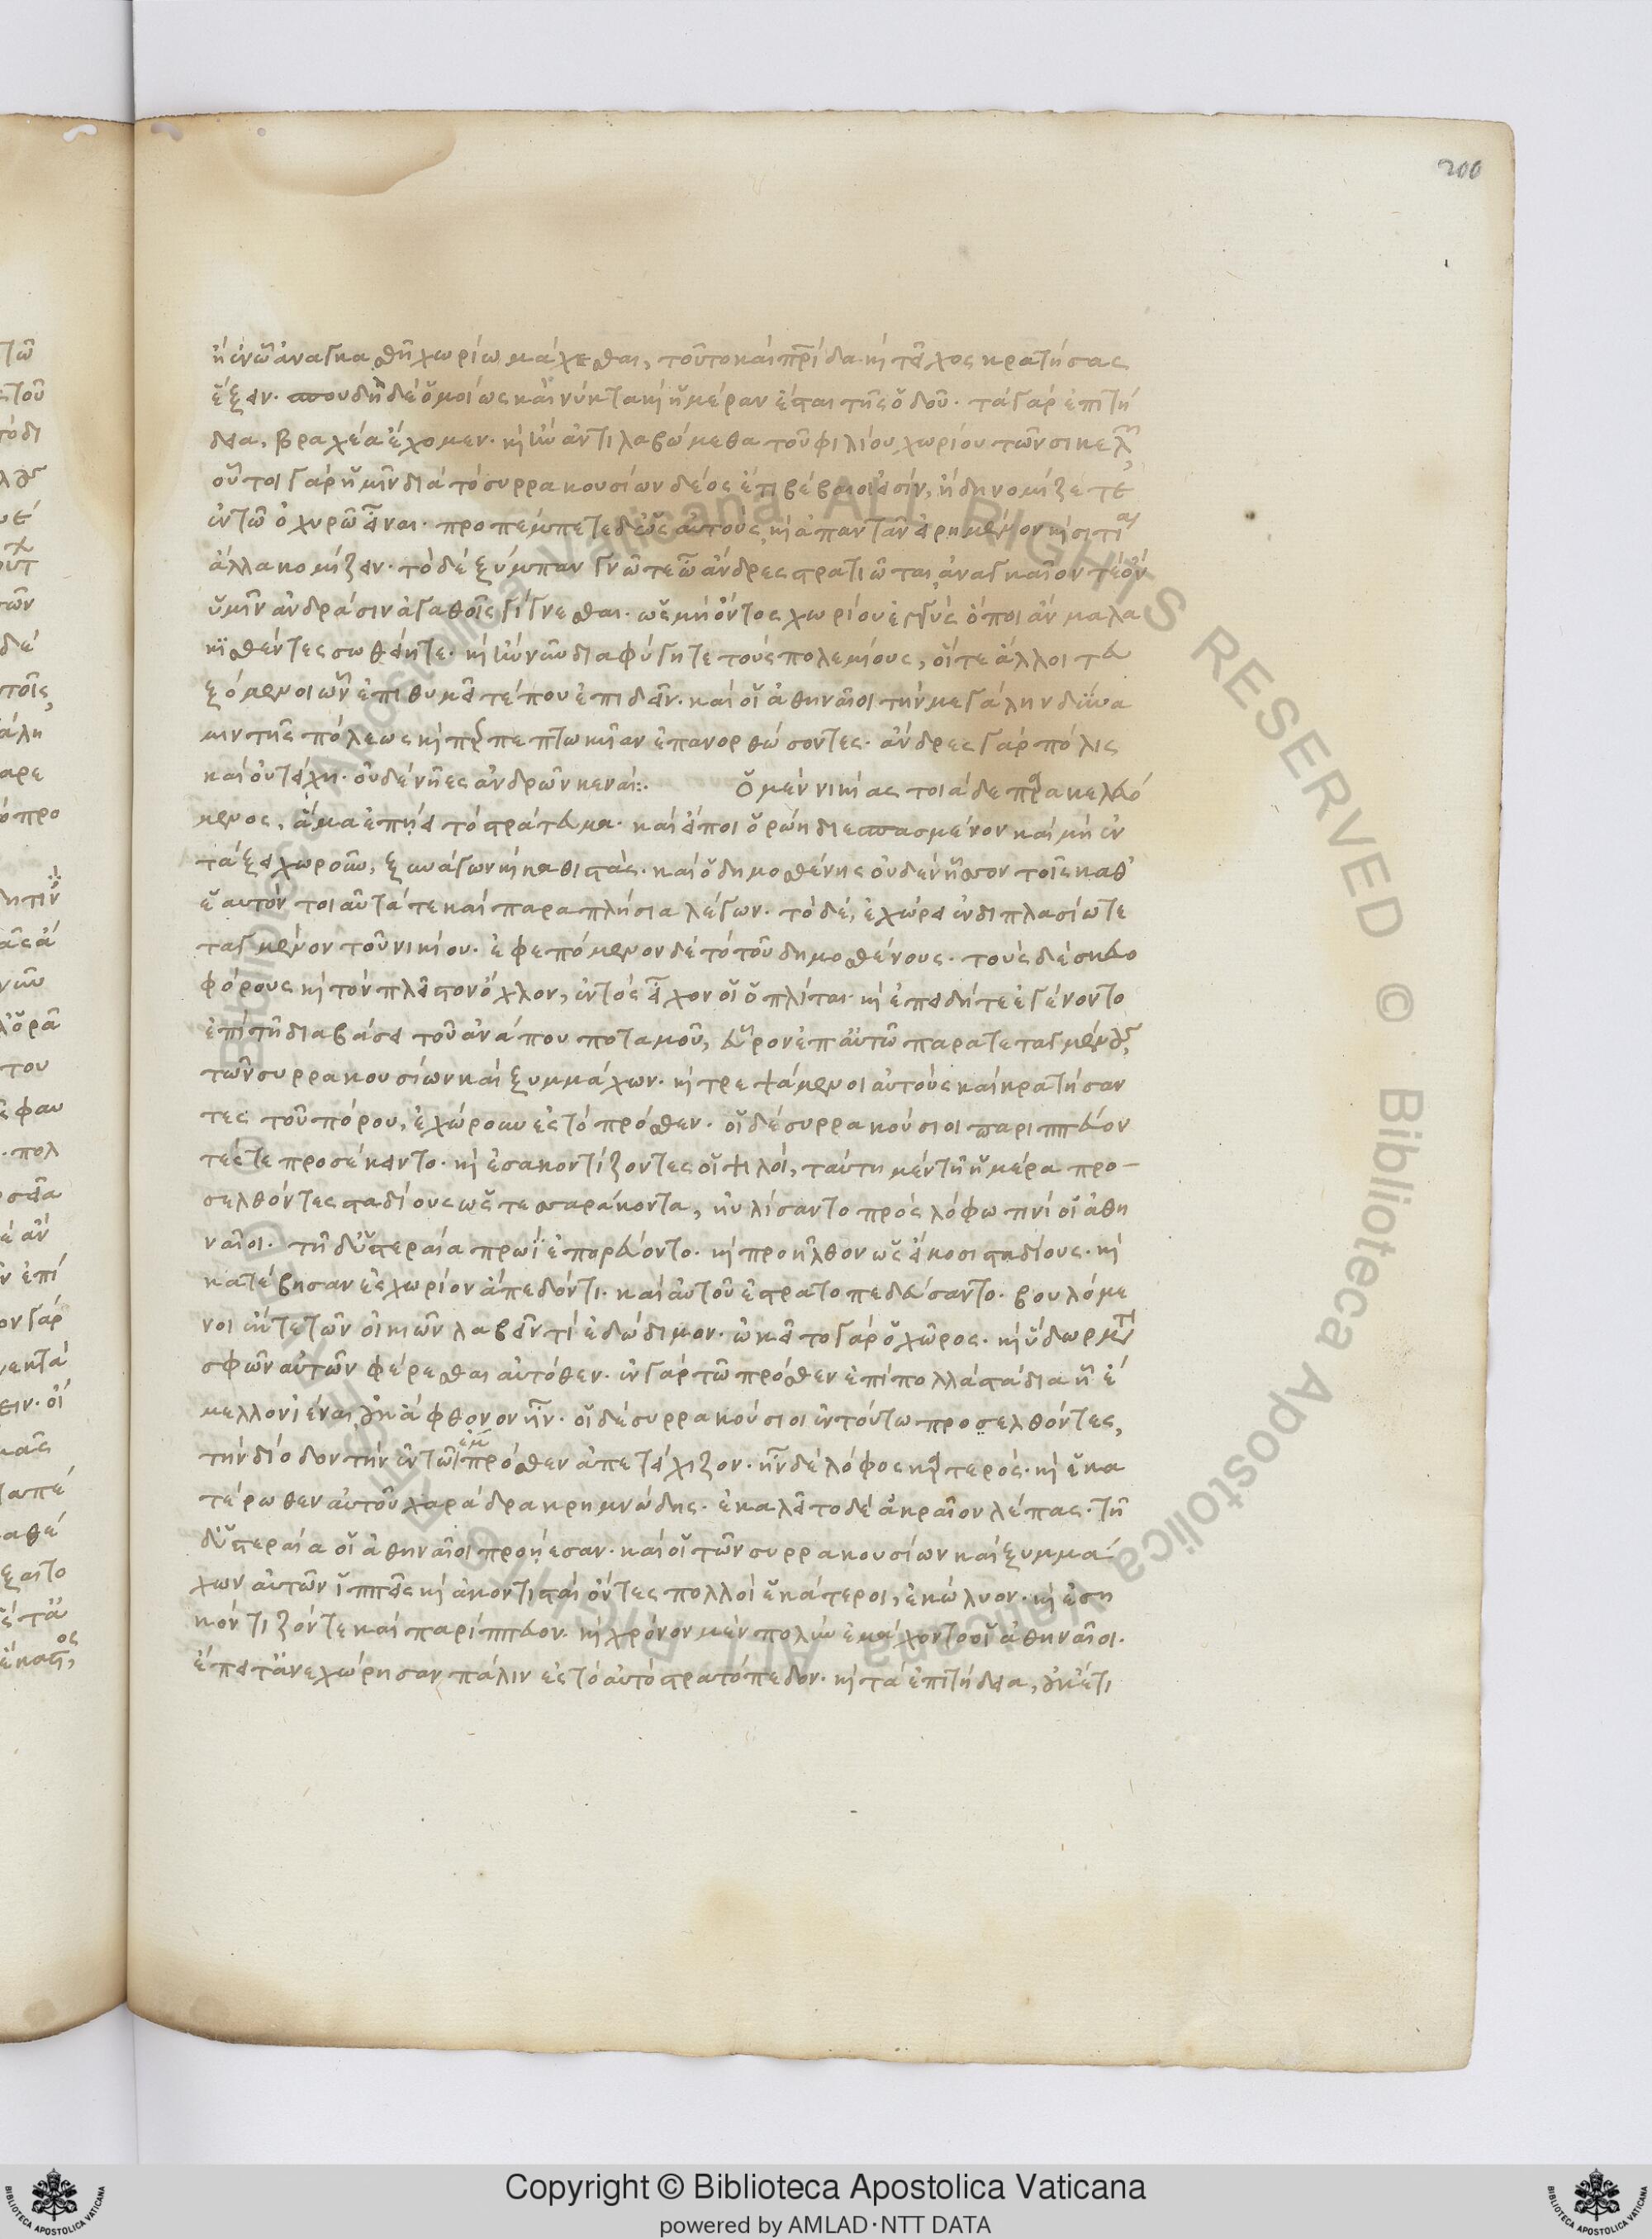 200
ἢ ἐν ὧ ἀναγκασθῆ χωρίω μάχεσθαι, τοῦτο καὶ πατρίδα κὶ τεῖχος κρατήσας
ἕξειν. σπουδὴ δὲ ὁμοίως καὶ νύκτα κὶ ἡμέραν ἔσται τῆς ὁδοῦ. τὰ γὰρ ἐπιτή
δεια, βραχέα ἔχομεν. κὶ ἢν ἀντιλαβώμεθα τοῦ φιλίου χωρίου τῶν σικελῶν
οὗτοι γὰρ ἡμῖν διὰ τὸ συρρακουσίων δέος ἔτι βέβαιοι εἰσίν, ἤδη νομίζετε
ἐν τῶ ὀχυρῶ εἶναι. προπέμπετε δ' ὡς αὐτοὺς, κὶ ἀπαντᾶν εἰρημένον κὶ σιτία
ἄλλα κομίζειν. τὸ δὲ ξύμπαν γνῶτε ὦ ἄνδρες στρατιῶται, ἀναγκαῖον τὲ ὂν
ὑμῖν ἀνδράσιν ἀγαθοῖς γίγνεσθαι. ὡς μὴ ὄντος χωρίου ἐγγὺς ὅποι ἂν μαλα
κισθέντες σωθείητε. κὶ ἢν νῦν διαφύγητε τοὺς πολεμίους, οἵ τε ἄλλοι τευ
ξόμενοι ὧν ἐπιθυμεῖτέ που ἐπιδεῖν. καὶ οἱ ἀθηναῖοι τὴν μεγάλην δύνα
μιν τῆς πόλεως κὶ περ πεπτωκυῖαν ἐπανορθώσοντες. ἄνδρες γὰρ πόλις
καὶ οὐ τείχη. οὐδὲ νῆες ἀνδρῶν κεναί:. Ὁ μὲν νικίας τοιάδε παρακελευό
μενος, ἅμα ἐπήει τὸ στράτευμα. καὶ εἴ ποι ὁρώη διεσπασμένον καὶ μὴ ἐν
τάξει χωροῦν, ξυνάγων κὶ καθιστάς. καὶ ὁ δημοσθένης οὐδὲν ἧσσον τοῖς καθ'
ἑαυτὸν τοιαῦτά τε καὶ παραπλήσια λέγων. τὸ δὲ, ἐχώρει ἐν διπλασίω τε
ταγμένον τοῦ νικίου. ἐφεπόμενον δὲ τὸ τοῦ δημοσθένους. τοὺς δὲ σκευο
φόρους κὶ τὸν πλεῖστον ὄχλον, ἐντὸς εἶχον οἱ ὁπλῖται. κὶ ἐπειδή τε ἐγένοντο
ἐπὶ τῆ διαβάσει τοῦ ἀνάπου ποταμοῦ, εὗρον ἐπ' αὐτῶ παρατεταγμένους
τῶν συρρακουσίων καὶ ξυμμάχων. κὶ τρεψάμενοι αὐτοὺς καὶ κρατήσαν
τες τοῦ πόρου, ἐχώρουν ἐς τὸ πρόσθεν. οἱ δὲ συρρακούσιοι παριππεύον
τές τε προσέκειντο. κὶ ἐσακοντίζοντες οἱ ψιλοί, ταύτη μὲν τῆ ἡμέρα προ-
σελθόντες σταδίους ὡς τεσσαράκοντα, ηὐλίσαντο πρὸς λόφω τινὶ οἱ ἀθη
ναῖοι. τῆ δ' ὑστεραία πρωῒ ἐπορεύοντο. κὶ προῆλθον ὡς εἴκοσι σταδίους. κὶ
κατέβησαν ἐς χωρίον ἄπεδόν τι. καὶ αὐτοῦ ἐστρατοπεδεύσαντο. βουλόμε
νοι ἔκ τε τῶν οἰκιῶν λαβεῖν τὶ ἐδώδιμον. ὠκεῖτο γὰρ ὁ χῶρος. κὶ ὕδωρ μετὰ
σφῶν αὐτῶν φέρεσθαι αὐτόθεν. ἐν γὰρ τῶ πρόσθεν ἐπὶ πολλὰ στάδια ἧ ἔ
μελλον ἰέναι, οὐκ ἄφθονον ἦν. οἱ δὲ συρρακούσιοι ἐν τούτω προσελθόντες,
τὴν δίοδον τὴν ἐν τῶ ἔμπρόσθεν ἀπετείχιζον. ἦν δὲ λόφος καρτερός. κὶ ἑκα
τέρωθεν αὐτοῦ χαράδρα κρημνώδης. ἐκαλεῖτο δὲ ἀκραῖον λέπας. τῆ
δ' ὑστεραία οἱ ἀθηναῖοι προήεσαν. καὶ οἱ τῶν συρρακουσίων καὶ ξυμμά
χων αὐτῶν ἱππεῖς κὶ ἀκοντισταὶ ὄντες πολλοὶ ἑκάτεροι, ἐκώλυον. κὶ ἐση
κόντιζόν τε καὶ παρίππευον. κὶ χρόνον μὲν πολὺν ἐμάχοντο οἱ ἀθηναῖοι.
ἔπειτ' ἀνεχώρησαν πάλιν ἐς τὸ αὐτὸ στρατόπεδον. κὶ τὰ ἐπιτήδεια, οὐκέτι
Biblioteca Apostolica Vaticana ALL RIGHTS RESERVED © Biblioteca Apostolica Vaticana ALL RIGHTS RESERVED ©
Copyright © Biblioteca Apostolica Vaticana
powered by AMLAD·NTT DATA
BIBLIOTECA APOSTOLICA VATICANA
BIBLIOTECA APOSTOLICA VATICANA